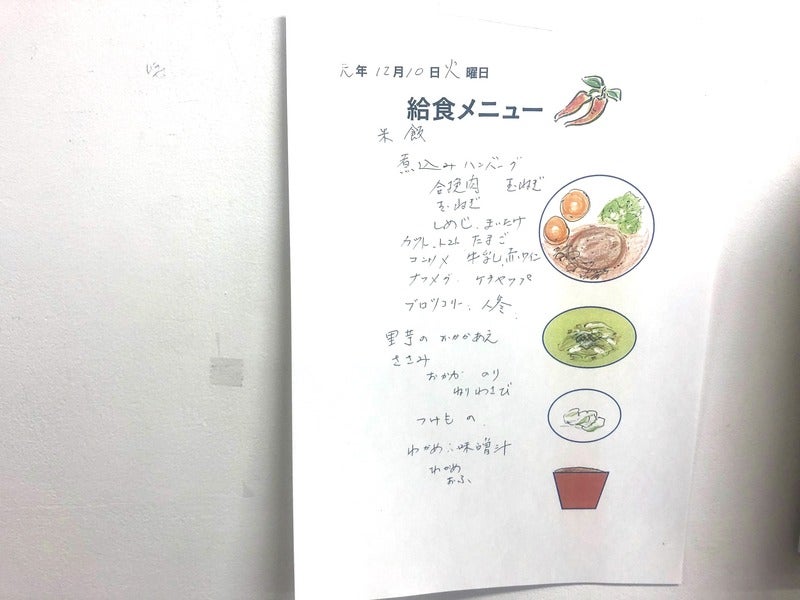 元年12月10日火曜日
給食メニュー
米飯
煮込みハンバーグ
合挽肉 玉ねぎ
玉ねぎ
しめじ、まいたけ
カットトマト たまご
コンソメ 牛乳、赤ワイン
ナツメグ、ケチャップ
ブロッコリー、人参
里芋のおかかあえ
ささみ
おかか のり
ねりわさび
つけもの
わかめ味噌汁
わかめ
おふ